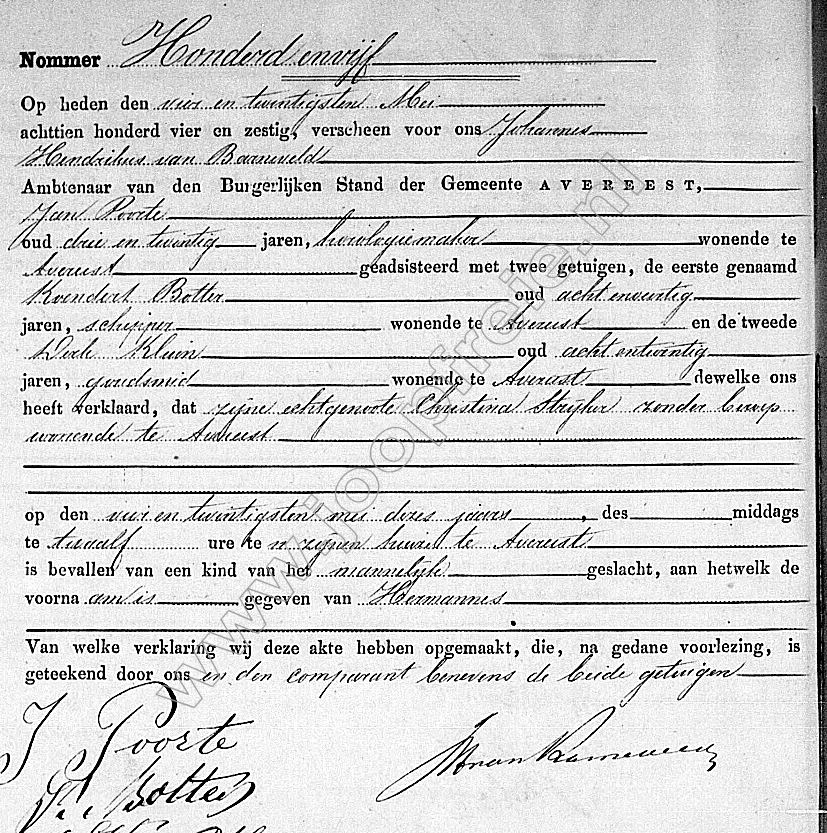 Nommer Honderd en vijf
Op heden den vier en twintigsten Mei
achttien honderd vier en zestig, verscheen voor ons Johannes
Hendrikus van Barneveld
Ambtenaar van den Burgerlijken Stand der Gemeente AVEREEST,
Jan Poorte
oud drie en twintig jaren, horologiemaker wonende te
Avereest geadsisteerd met twee getuigen, de eerste genaamd
Koendert Botter oud acht en veertig
jaren, schipper wonende te Avereest en de tweede
Derk Kluin oud acht en twintig
jaren, goudsmid wonende te Avereest dewelke ons
heeft verklaard, dat zijne echtgenoote Christina Strijker zonder beroep
wonende te Avereest
op den vier en twintigsten mei dezes jaars, des middags
te twaalf ure te n zijnen huize te Avereest
is bevallen van een kind van het mannelijk geslacht, aan hetwelk de
voorna am is gegeven van Hermannes
Van welke verklaring wij deze akte hebben opgemaakt, die, na gedane voorlezing, is
geteekend door ons en den comparant benevens de beide getuigen
J Poorte
JHvanBarneveld
K. Botter
www.joopfreie.nl